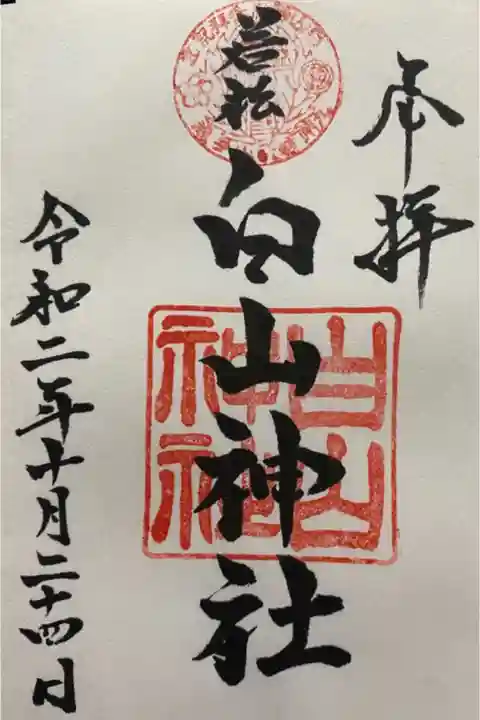 奉拝
若松
白山神社
白山
神社
令和二年十月二十四日